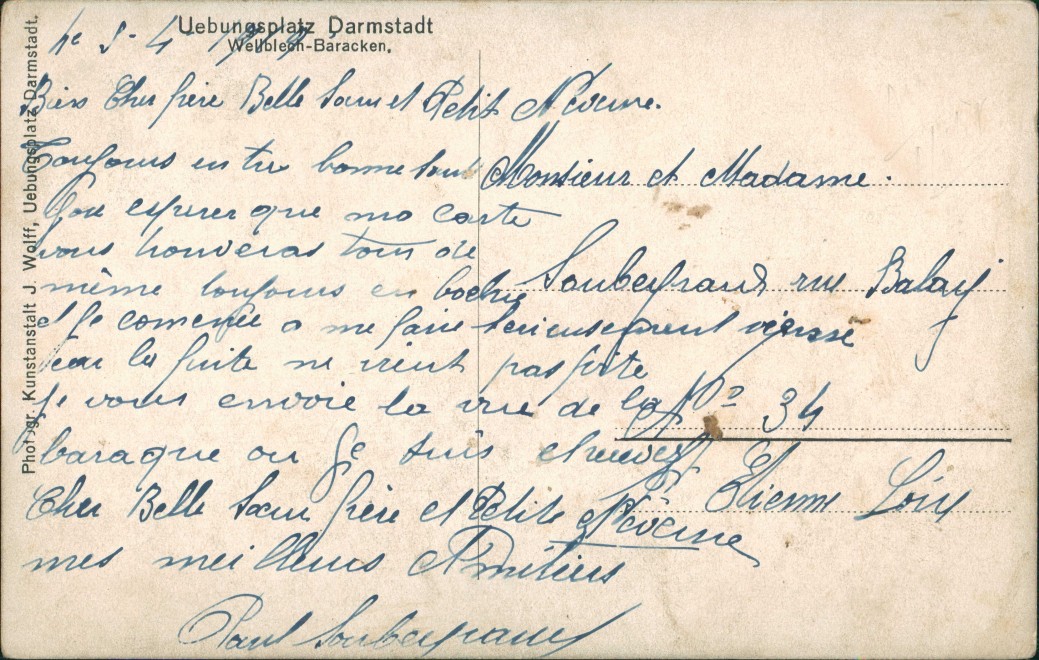 Uebungsplatz Darmstadt
Wellblech-Baracken.
Photogr. Kunstanstalt J. Wolff, Uebungsplatz Darmstadt.
le 5-4-
Bien Cher frère Belle Soeur et Petit
Toujours en tres bonne
que esperer que ma carte
vous trouveras tous de
même toujours en bochie
et je comence a me faire serieusement
car la fuite ne vient pas fite
Je vous envoie la vue de la
baraque ou Je suis
Cher Belle Sœur frère et Petite
mes meilleurs Amitiers
Paul Soubeyrand
Monsieur et Madame.
Soubeyrand rue Balay
No 34
St Etienne Loire